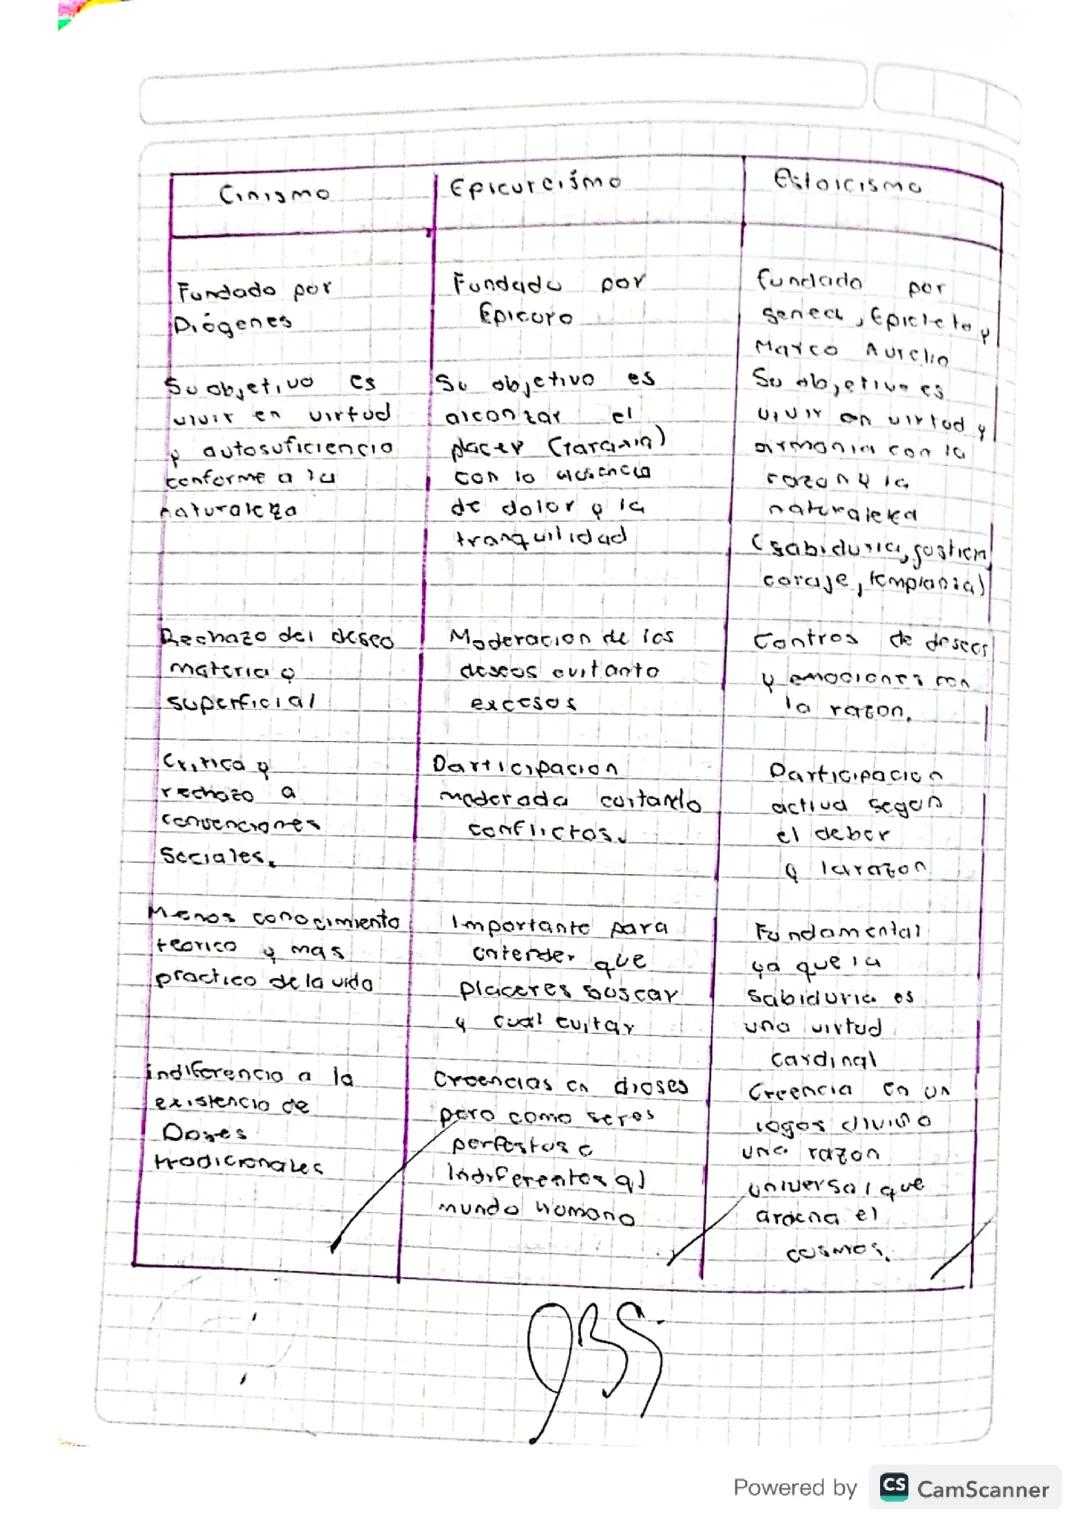 Cinismo
Epicureismo
Estoicismo
Fundado por
Diógenes
Fundado por
Epicuro
fundado por
seneca, Epicteto y
Marco Aurelio
Su objetivo es
vivir en virtud
y autosuficiencia
conforme a la
naturaleza
Su objetivo es
alcanzar el
placer
con la ausencia
de dolor y la
tranquilidad
Su objetivo es
vivir en virtud y
armonia con la
razon y la
naturaleza
(sabiduria, justicia
coraje, templanza)
Rechazo del deseo
materia y
superficial
Moderacion de los
deseos evitanto
excesos
Contros de deseos
y emociones con
la razon.
Critica y
rechazo a
convenciones
Sociales.
Participacion
moderada evitando
conflictos.
Participacion
activa segun
el deber
y la razon
Menos conocimiento
teorico y mas
practico de la vida
Importante para
entender que
placeres buscar
y cual evitar
Fundamental
ya que la
Sabiduria es
una virtud
cardinal
indiferencia a la
existencia de
Doses
tradicionales
Creencias en dioses
pero como seres
perfectos e
Indiferentes al
mundo humano
Creencia en un
logos divino
una razon
universal que
ordena el
cosmos.
Powered by CS CamScanner